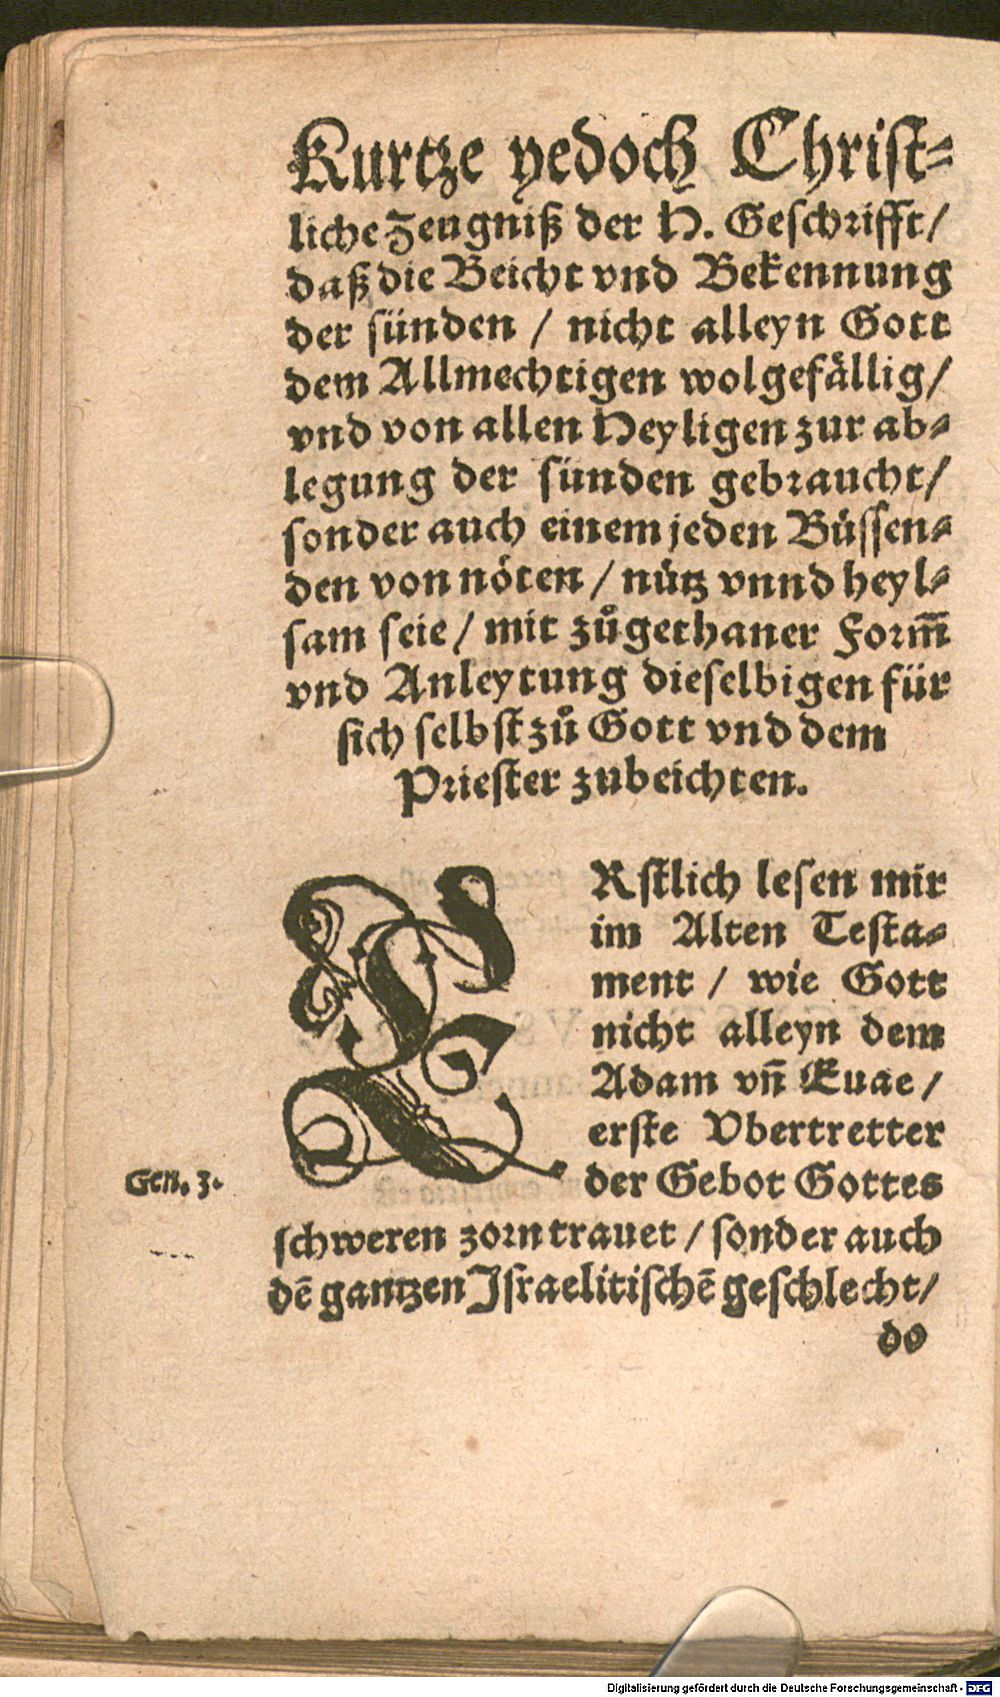 Kurtze yedoch Christ-
liche Zeugniß der H. Geschrifft/
daß die Beicht vnd Bekennung
der sünden / nicht alleyn Gott
dem Allmechtigen wolgefällig/
vnd von allen Heyligen zur ab-
legung der sünden gebraucht/
sonder auch einem jeden Büssen-
den von nöten / nütz vnnd heyl-
sam seie / mit zůgethaner Form̅
vnd Anleytung dieselbigen für
sich selbst zů Gott vnd dem
Priester zubeichten.
ERstlich lesen mir
im Alten Testa-
ment / wie Gott
nicht alleyn dem
Adam vn̄ Euae /
erste Vbertretter
der Gebot Gottes
Gen. 3.
schweren zorn trauet / sonder auch
dē gantzen Israelitischē geschlecht/
do
Digitalisierung gefördert durch die Deutsche Forschungsgemeinschaft - DFG